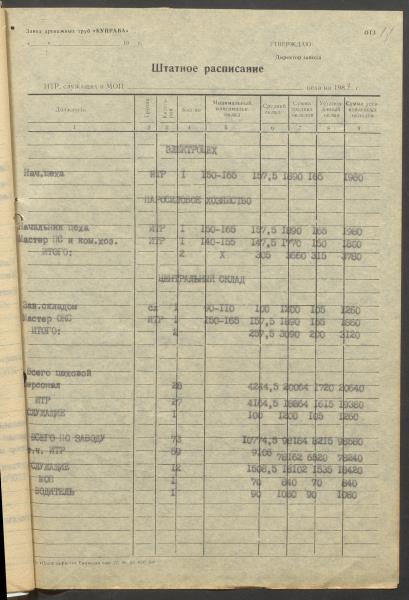 Завод дренажных труб «КУПРАВА»
ОТЗ
« » 19 г.
УТВЕРЖДАЮ:
Директор завода
Штатное расписание
ИТР, служащих и МОП цеха на 198 г.
Должность Кол-во Минимальный, максимальн. оклад Средний оклад Сумма средних окладов Установленный оклад Сумма установленных окладов
1 2 3 4 5 6 7 8 9
ЭЛЕКТРОЦЕХ
Нач.цеха ИТР 1 150-165 157,5 1890 165 1980
ПАРОСИЛОВОЕ ХОЗЯЙСТВО
Начальник цеха ИТР 1 150-165 157,5 1890 165 1980
Мастер ПС и ком.хоз. ИТР 1 140-155 147,5 1770 150 1800
ИТОГО: 2 X 305 3660 315 3780
ЦЕНТРАЛЬНЫЙ СКЛАД
Зав.складом сл 1 90-110 100 1200 105 1260
Мастер ОКС ИТР 1 150-165 157,5 1890 155 1860
ИТОГО: 2 257,5 3090 260 3120
Всего цеховой
персонал 28 4244,5 20064 1720 20640
ИТР 27 4164,5 18864 1615 19380
СЛУЖАЩИЕ 1 100 1200 105 1260
ВСЕГО ПО ЗАВОДУ 73 10774,5 98184 8215 98580
т.ч. ИТР 59 9106 78162 6520 78240
СЛУЖАЩИЕ 12 1508,5 18102 1535 18420
МОП 1 70 840 70 840
ВОДИТЕЛЬ 1 90 1080 90 1080